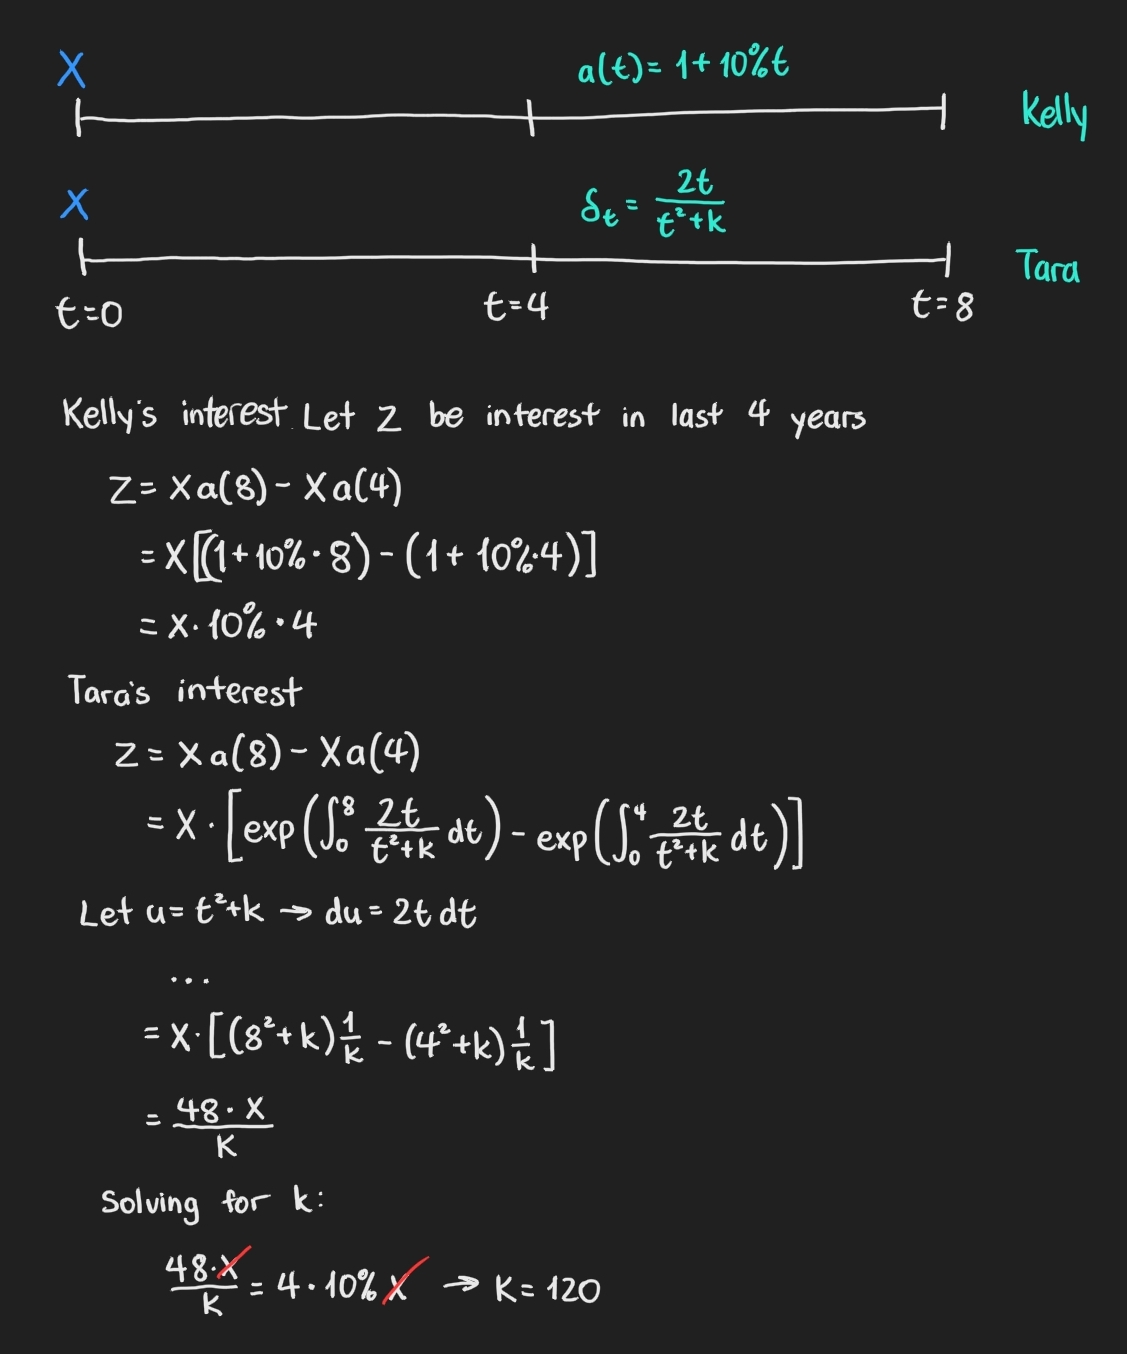 X
a(t)= 1+10%t
Kelly
X
δₜ = 2t/(t²+k)
Tara
t=0
t=4
t=8
Kelly's interest. Let Z be interest in last 4 years
Z= Xa(8) - Xa(4)
= X[(1+10%·8) - (1+ 10%·4)]
= X·10%·4
Tara's interest
Z = Xa(8) - Xa(4)
= X·[exp(∫₀⁸ 2t/(t²+k) dt) - exp(∫₀⁴ 2t/(t²+k) dt)]
Let u= t²+k → du = 2t dt
...
= X·[(8²+k)1/k - (4²+k)1/k]
= 48·X/K
Solving for k:
48·X/k = 4·10% X → K= 120